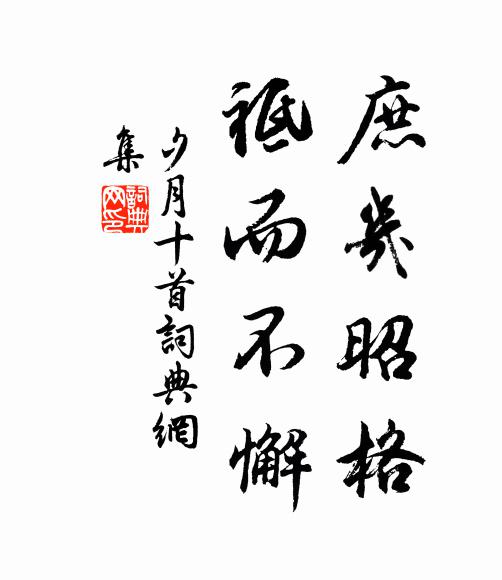 庶幾昭格
祗而不懈
夕月十首詞典網
集
詞典網印